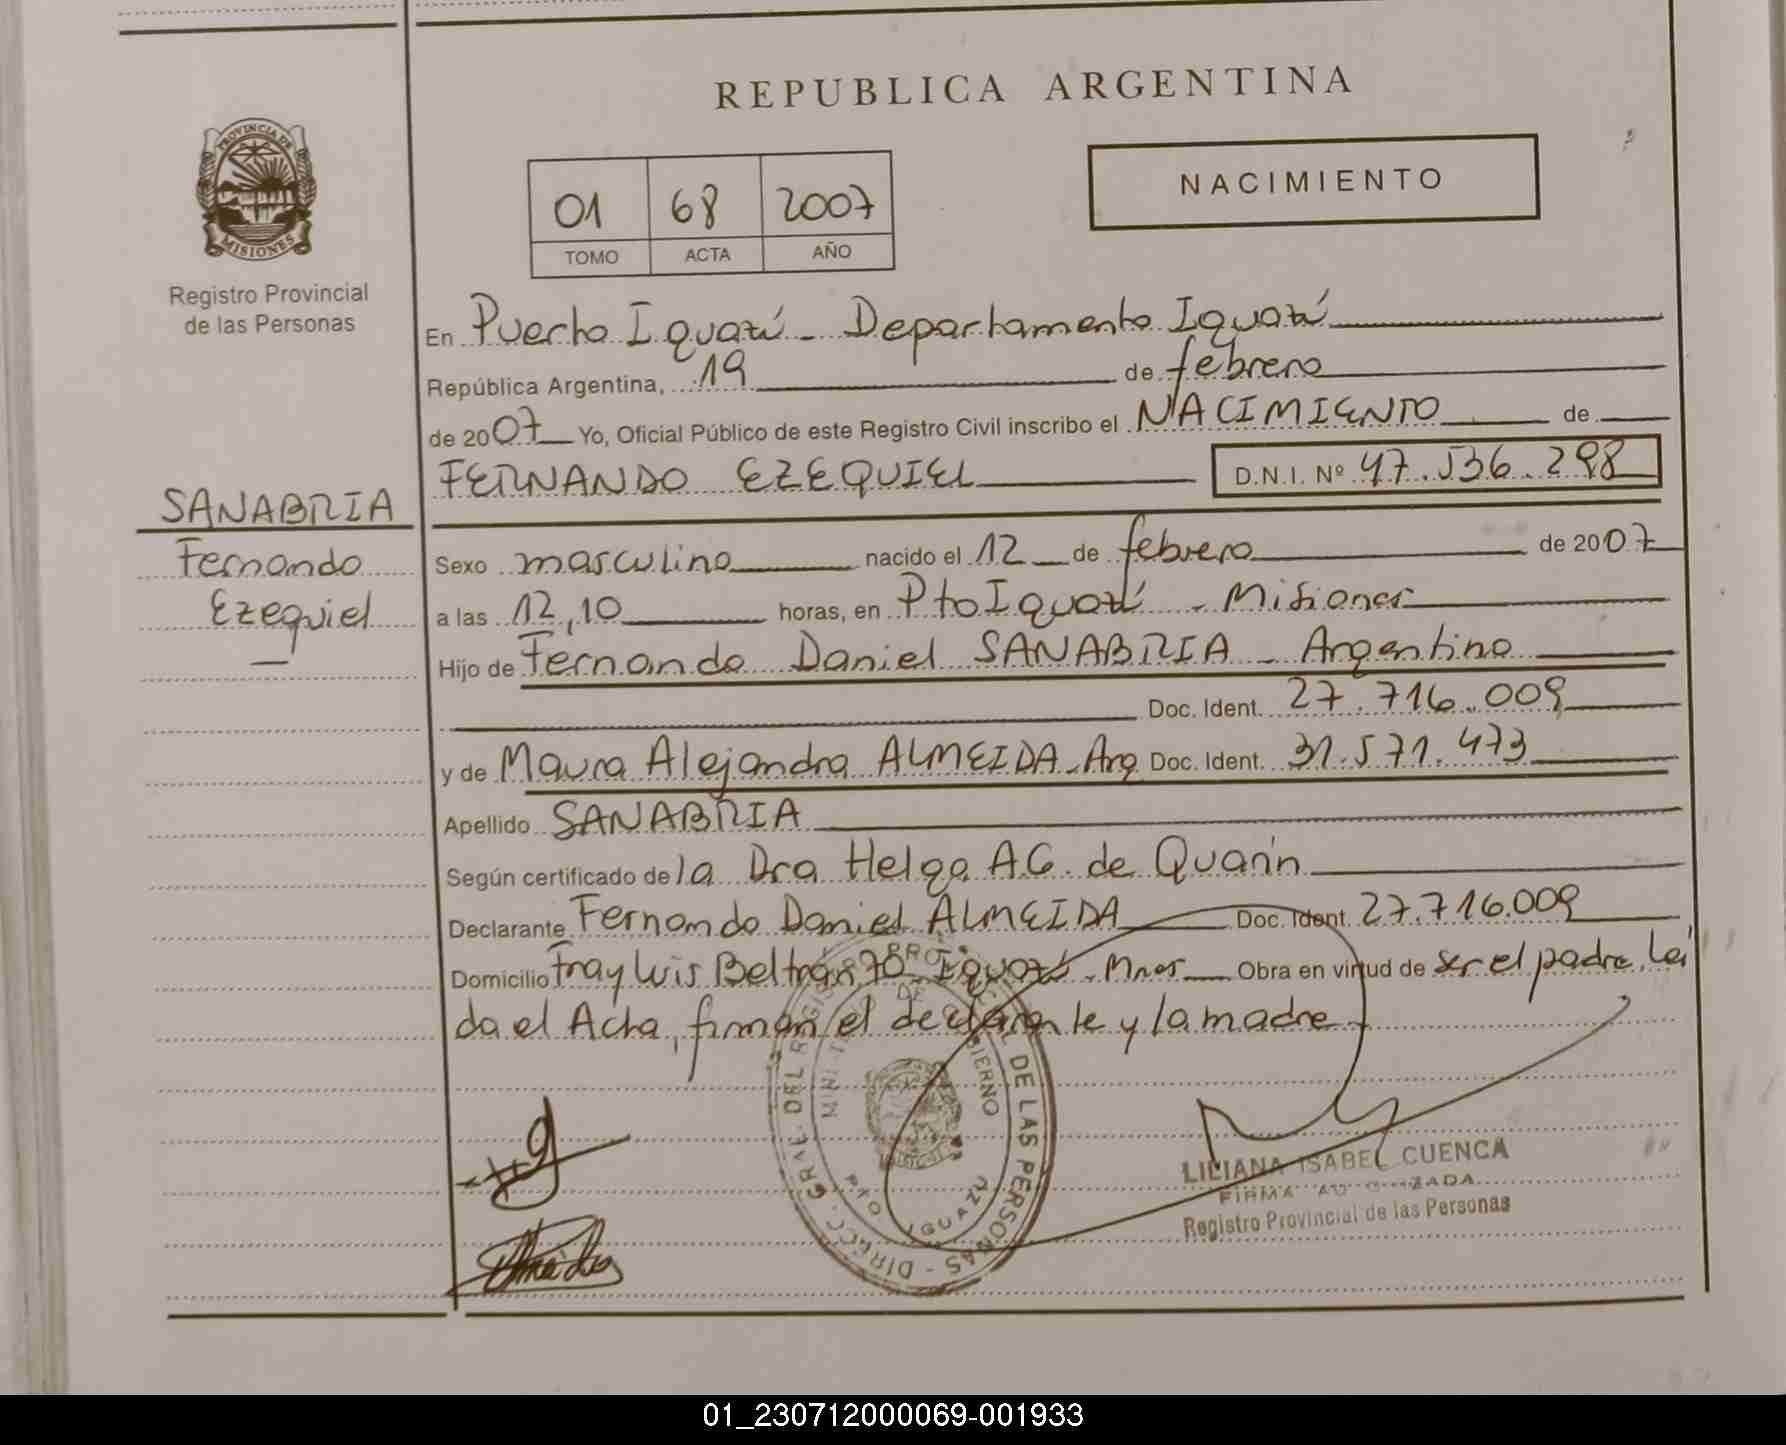 REPUBLICA ARGENTINA
PROVINCIA DE
MISIONES
Registro Provincial
de las Personas
01 68 2007
TOMO ACTA AÑO
NACIMIENTO
En Puerto Iguazú - Departamento Iguazú
República Argentina, 19 de febrero
de 2007 Yo, Oficial Público de este Registro Civil inscribo el NACIMIENTO de
FERNANDO EZEQUIEL D.N.I. Nº 47.536.298
SANABRIA
Fernando
Ezequiel
Sexo masculino nacido el 12 de febrero de 2007
a las 12,10 horas, en Pto Iguazú - Misiones
Hijo de Fernando Daniel SANABRIA - Argentino
Doc. Ident. 27.716.009
y de Maura Alejandra ALMEIDA - Arg Doc. Ident. 31.571.473
Apellido SANABRIA
Según certificado de la Dra Helga A.G. de Quarín
Declarante Fernando Daniel ALMEIDA Doc. Ident. 27.716.009
Domicilio Fray Luis Beltrán 70 Iguazú - Mnes Obra en virtud de ser el padre, Leí
da el Acta, firman el declarante y la madre
DIRECC. GRAL. DEL REGISTRO PROVINCIAL DE LAS PERSONAS
MINISTERIO DE GOBIERNO
PTO. IGUAZU
LILIANA ISABEL CUENCA
FIRMA AUTORIZADA
Registro Provincial de las Personas
01_230712000069-001933